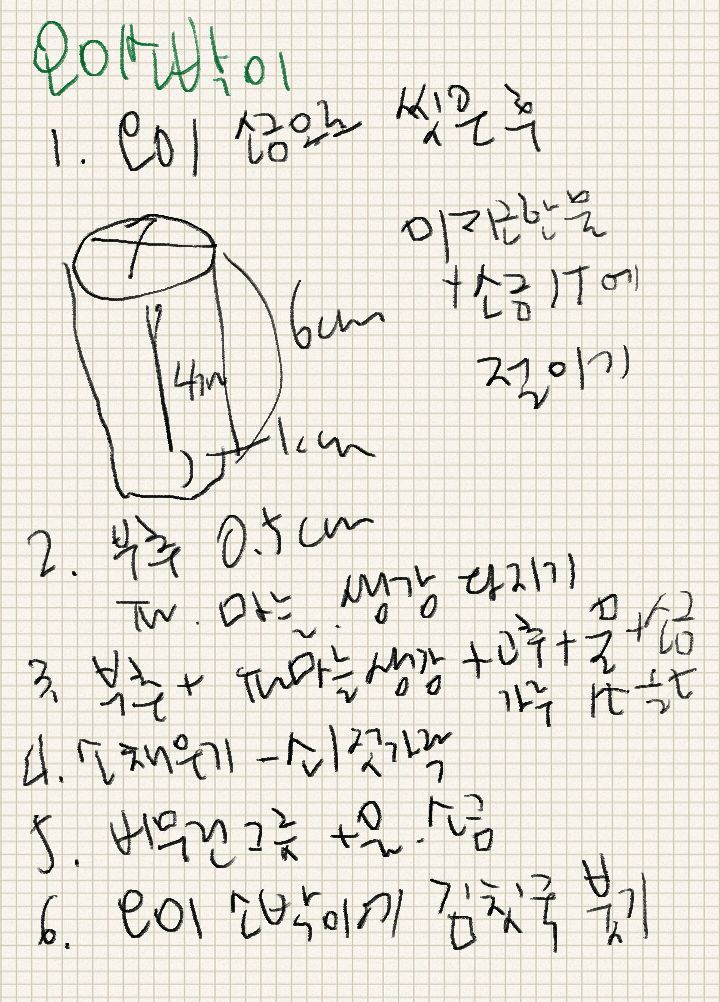 오이소박이
1. 오이 소금으로 씻은 후
미지근한 물
+소금 1T에
절이기
6cm
4cm
1cm
2. 부추 0.5cm
파. 마늘. 생강 다지기
3. 부추+ 파마늘생강 +고추+물+소금
가루
4. 소 채우기 -
5. 버무린 그릇 +물. 소금
6. 오이소박이에 김칫국 붓기